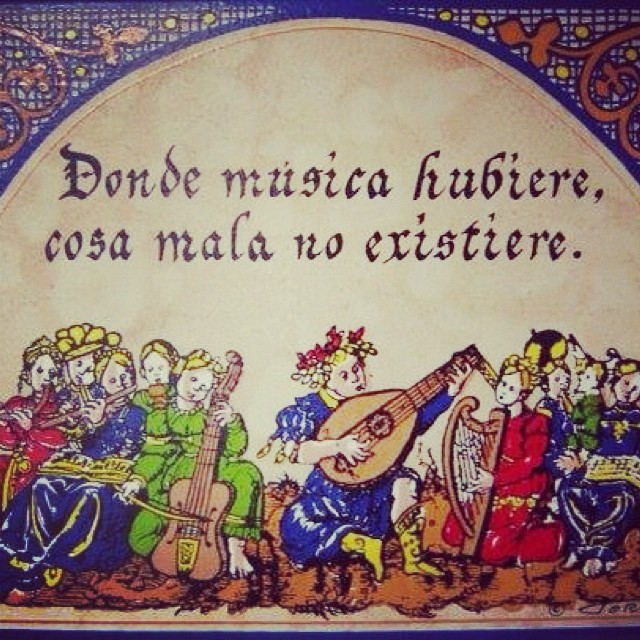 Donde música hubiere,
cosa mala no existiere.